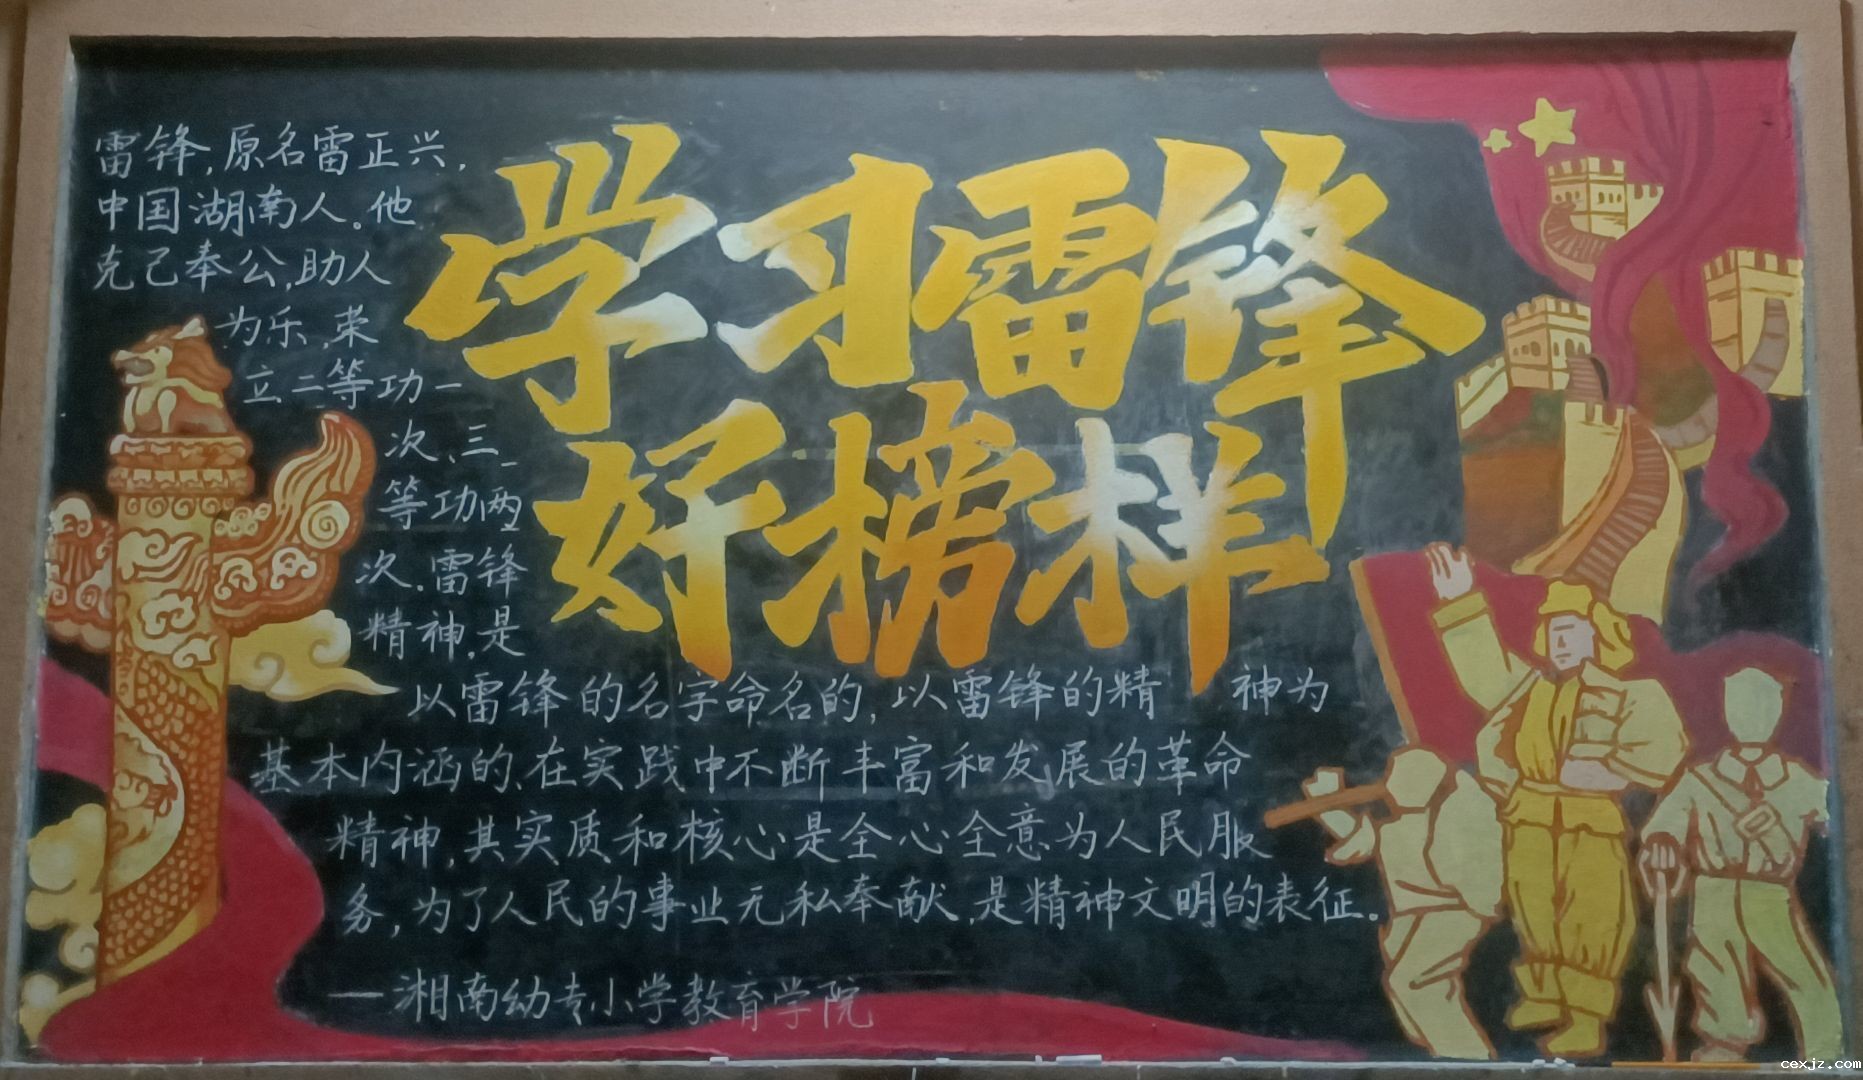 学习雷锋
好榜样
雷锋,原名雷正兴,
中国湖南人。他
克己奉公,助人
为乐,荣
立二等功一
次、三
等功两
次。雷锋
精神,是
以雷锋的名字命名的,以雷锋的精 神为
基本内涵的、在实践中不断丰富和发展的革命
精神,其实质和核心是全心全意为人民服
务,为了人民的事业无私奉献,是精神文明的表征。
—湘南幼专小学教育学院
cexjz.com